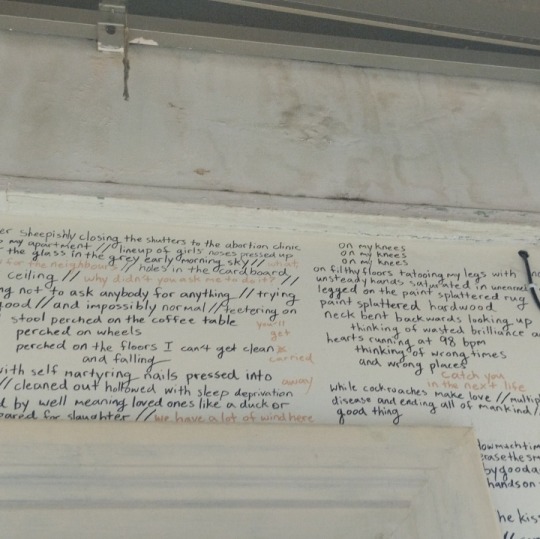 er sheepishly closing the shutters to the abortion clinic
my apartment // lineup of girls' noses pressed up
the glass in the grey early morning sky // what
for the neighbours // holes in the cardboard
ceiling // why didn't you ask me to do it? //
ng not to ask anybody for anything // trying
good // and impossibly normal // teetering on
stool perched on the coffee table
perched on wheels
perched on the floors I can't get clean
and falling
you'll
get
carried
away
with self martyring nails pressed into
// cleaned out hollowed with sleep deprivation
d by well meaning loved ones like a duck or
pared for slaughter // we have a lot of wind here
on my knees
on my knees
on my knees
on filthy floors tatooing my legs with
unsteady hands saturated in
legged on the paint splattered rug
paint splattered hardwood
neck bent backwards looking up
thinking of wasted brilliance a
hearts running at 98 bpm
thinking of wrong times
and wrong places
catch you
in the next life
while cockroaches make love // multip
disease and ending all of mankind /
good thing
low much tim
erase the sm
by good a
hands on
he kis